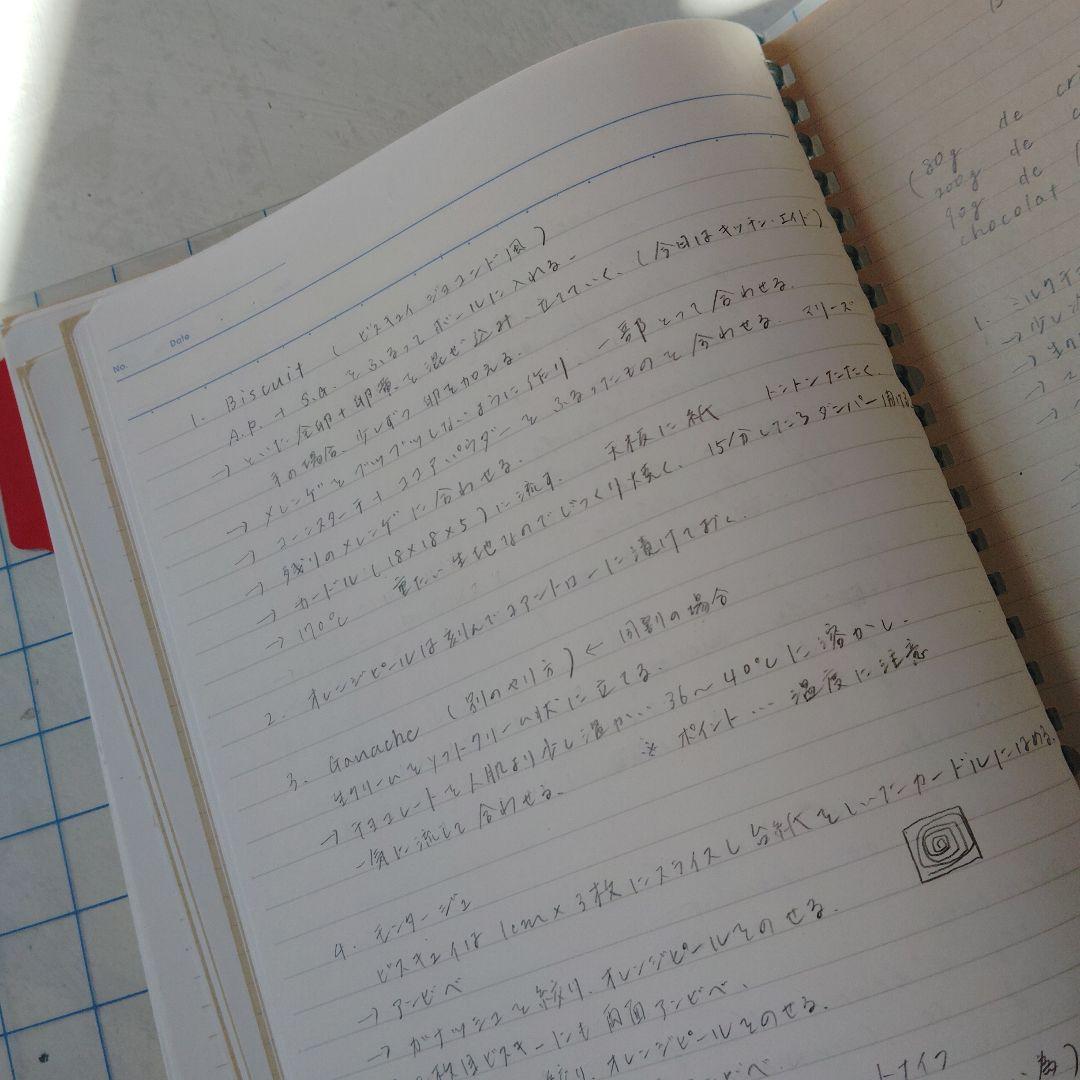 No.
Date
1. Biscuit (ビスキュイ ジョコンド風)
A.P. + S.G. をふるってボールに入れる。
→ といた全卵+卵黄を混ぜ込み、立てていく。(今日はキッチン・エイド)
手の場合、少しずつ卵を加える。
→ メレンゲをブツブツしないように作り、一部とって合わせる。
→ コーンスターチ+ココアパウダーをふるったものを合わせる。 マリーズ
→ 残りのメレンゲに合わせる。
→ カードル(18×18×5)に流す。 天板に紙 トントンたたく。
→ 170℃ 重たい生地なのでじっくり焼く。 15分したらダンパー開ける
2. オレンジピールは刻んでコアントローに漬けておく。
3. Ganache (別のやり方) ← 同割の場合
生クリームをソフトクリーム状に立てる。
→ チョコレートを人肌より少し温か… 36〜40℃に溶かし、
一気に流して合わせる。 ※ ポイント… 温度に注意
4. モンタージュ
ビスキュイは 1cm×3枚にスライスし台紙をしいたカードルにはめる。
→ アンビベ
→ ガナッシュを絞り、オレンジピールをのせる。
枚目ビスキーにも両面アンビベ、
絞り、オレンジピールをのせる。
ナイフ
(80g de
200g de
90g de
chocolat
1. ミルク
→ 少し